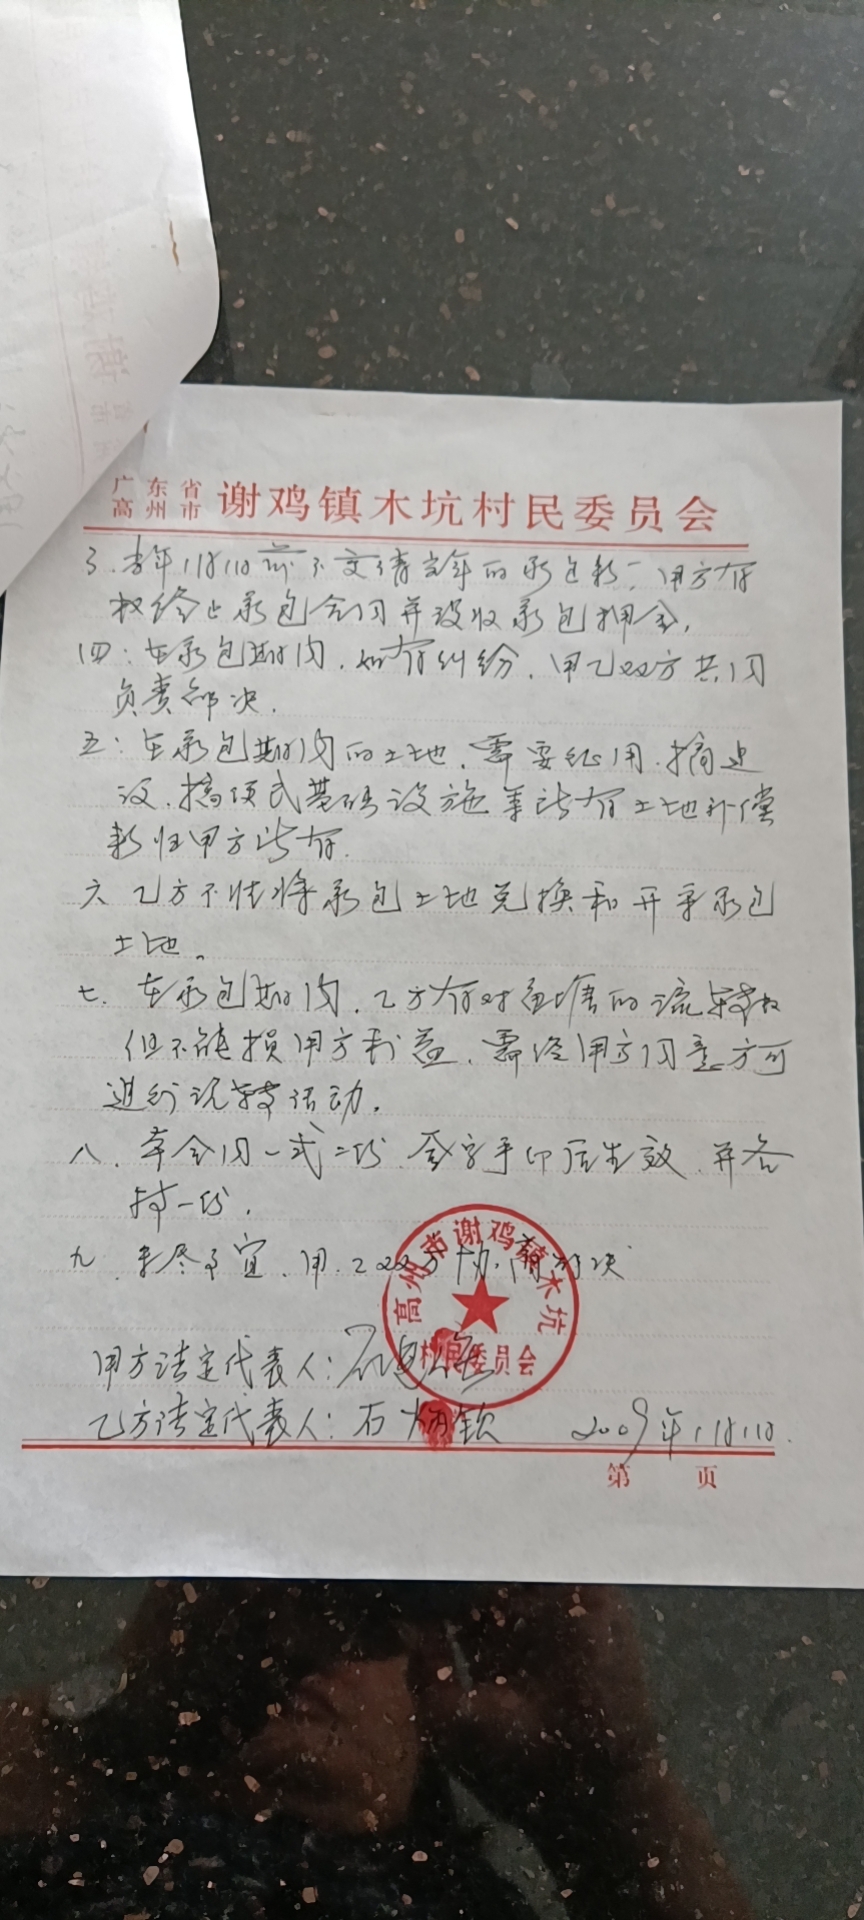 广东省
高州市 谢鸡镇木坑村民委员会
3. 当年1月1日前不交清当年的承包款，甲方有
权终止承包合同并没收承包押金，
四：在承包期内，如有纠纷，甲乙双方共同
负责解决．
五：在承包期内的土地，需要征用．搞建
设，搞 式基础设施等所有土地补偿
款归甲方所有．
六 乙方不 将承包土地兑换和 承包
土地。
七、在承包期内，乙方有对鱼塘的流转权
但不能损甲方利益，需经甲方同意方可
进行流转活动．
八、本合同一式二份、签字手印后生效．并各
持一份．
九、未尽事宜、甲．乙双方协商解决
甲方法定代表人：石
乙方法定代表人：石炳钦 2009年1月1日．
高州市谢鸡镇木坑
村民委员会
第 页